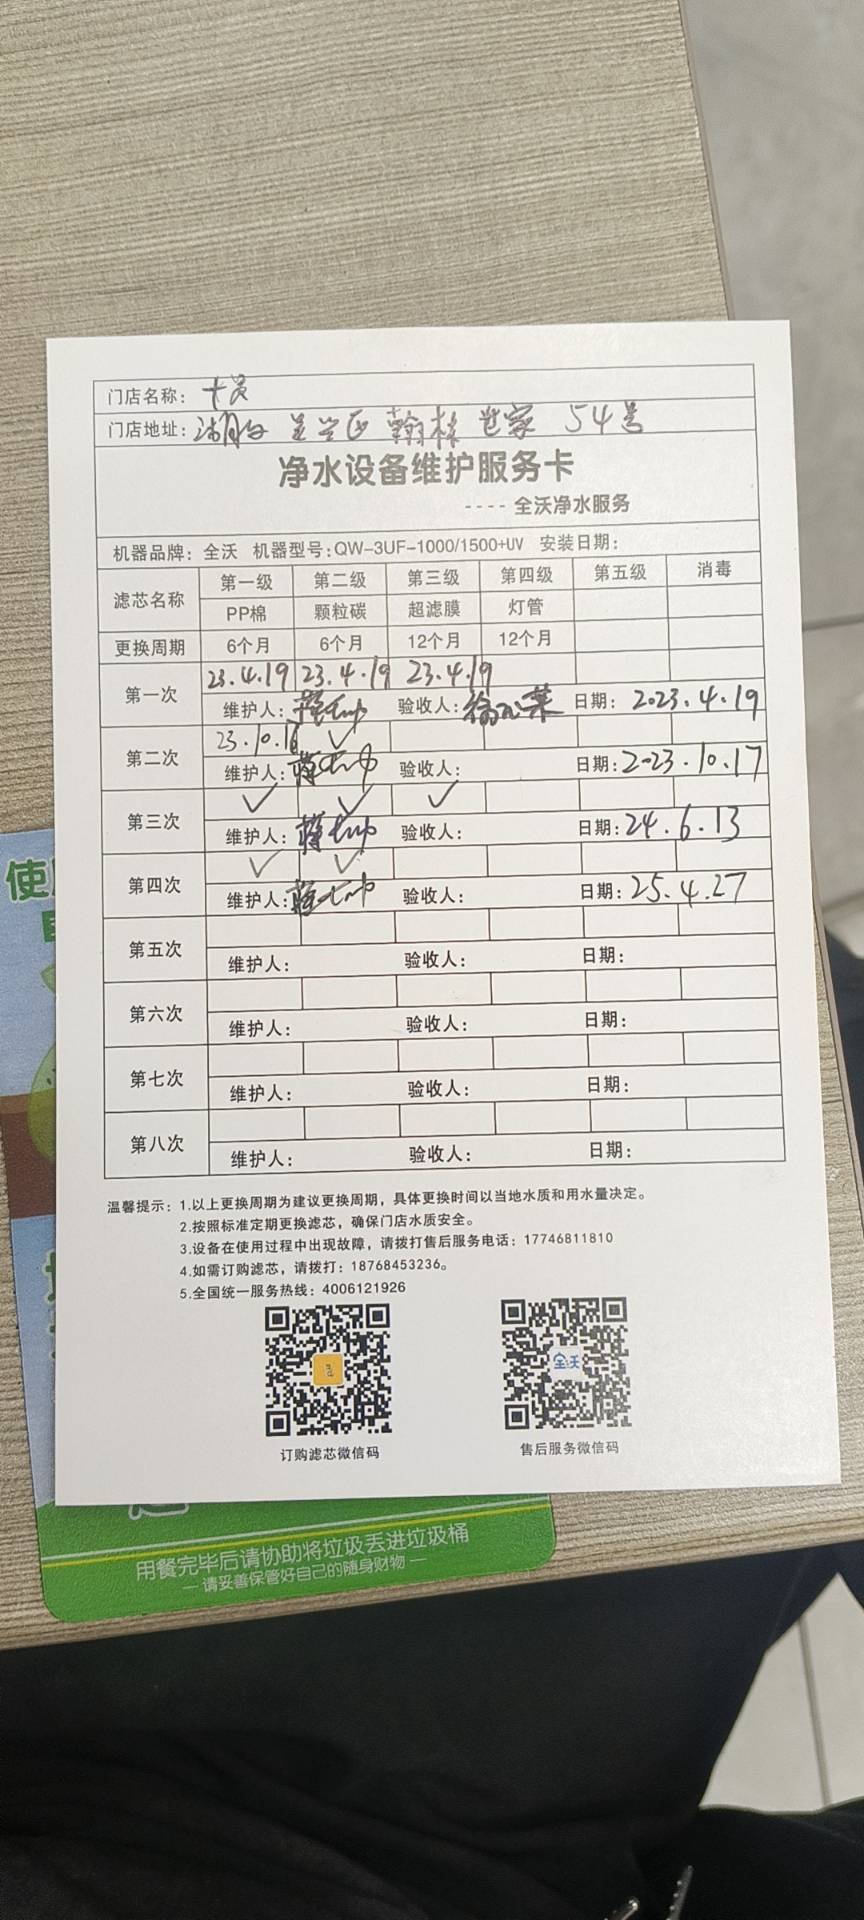 门店名称：
门店地址： 吴兴区 翰林 世家 54号
净水设备维护服务卡
---- 全沃净水服务
机器品牌：全沃 机器型号：QW-3UF-1000/1500+UV 安装日期：
滤芯名称 第一级 第二级 第三级 第四级 第五级 消毒
PP棉 颗粒碳 超滤膜 灯管
更换周期 6个月 6个月 12个月 12个月
23.4.19 23.4.19 23.4.19
第一次
维护人： 验收人： 日期：2023.4.19
23.10.16 ✓
第二次
维护人： 验收人： 日期：2023.10.17
✓ ✓ ✓
第三次
维护人： 验收人： 日期：24.6.13
✓ ✓
第四次
维护人： 验收人： 日期：25.4.27
第五次
维护人： 验收人： 日期：
第六次
维护人： 验收人： 日期：
第七次
维护人： 验收人： 日期：
第八次
维护人： 验收人： 日期：
温馨提示：1.以上更换周期为建议更换周期，具体更换时间以当地水质和用水量决定。
2.按照标准定期更换滤芯，确保门店水质安全。
3.设备在使用过程中出现故障，请拨打售后服务电话：17746811810
4.如需订购滤芯，请拨打：18768453236。
5.全国统一服务热线：4006121926
全沃
订购滤芯微信码 售后服务微信码
使
用餐完毕后请协助将垃圾丢进垃圾桶
— 请妥善保管好自己的随身财物 —